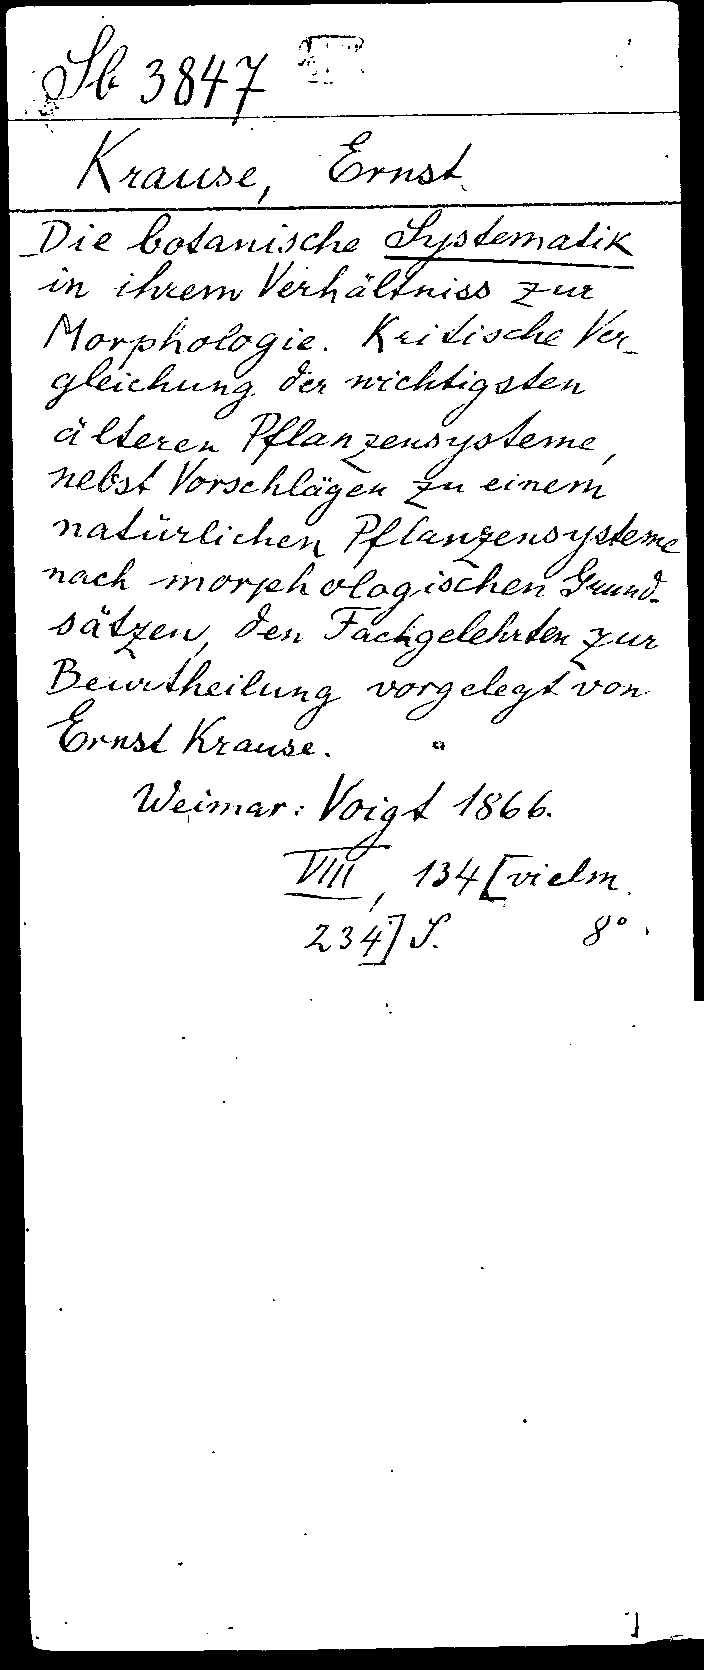 Sb 3847
Krause, Ernst.
Die botanische Systematik
in ihrem Verhältniss zur
Morphologie. Kritische Ver-
gleichung der wichtigsten
älteren Pflanzensysteme,
nebst Vorschlägen zu einem
natürlichen Pflanzensysteme
nach morphologischen Grund-
sätzen, den Fachgelehrten zur
Beurtheilung vorgelegt von
Ernst Krause.
Weimar: Voigt 1866.
VIII, 134 [vielm.
234] S. 8°.